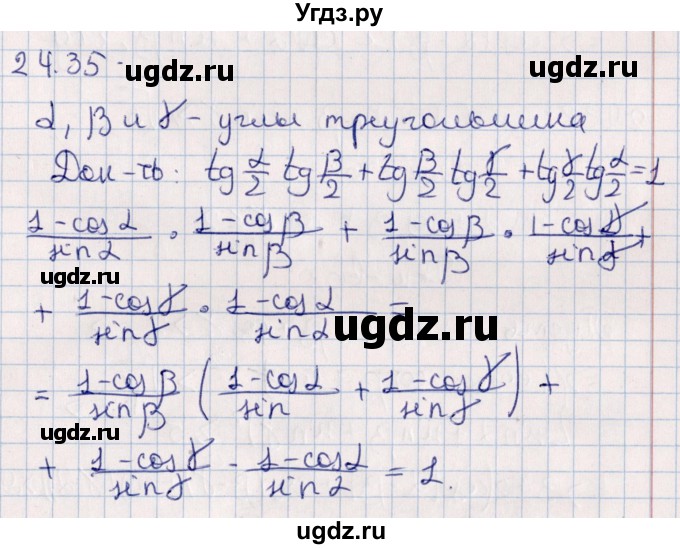 Угдз.ру
24.35
ugdz.ru ugdz.ru
α, β и γ - углы треугольника
Док-ть: tg α/2 tg β/2 + tg β/2 tg γ/2 + tg γ/2 tg α/2 = 1
ugdz.ru
(1-cos α)/(sin α) · (1-cos β)/(sin β) + (1-cos β)/(sin β) · (1-cos γ)/(sin γ) +
ugdz.ru ugdz.ru
+ (1-cos γ)/(sin γ) · (1-cos α)/(sin α) =
ugdz.ru
= (1-cos β)/(sin β) ((1-cos α)/(sin) + (1-cos γ)/(sin γ)) +
ugdz.ru ugdz.ru
+ (1-cos γ)/(sin γ) - (1-cos α)/(sin α) = 1.
ugdz.ru